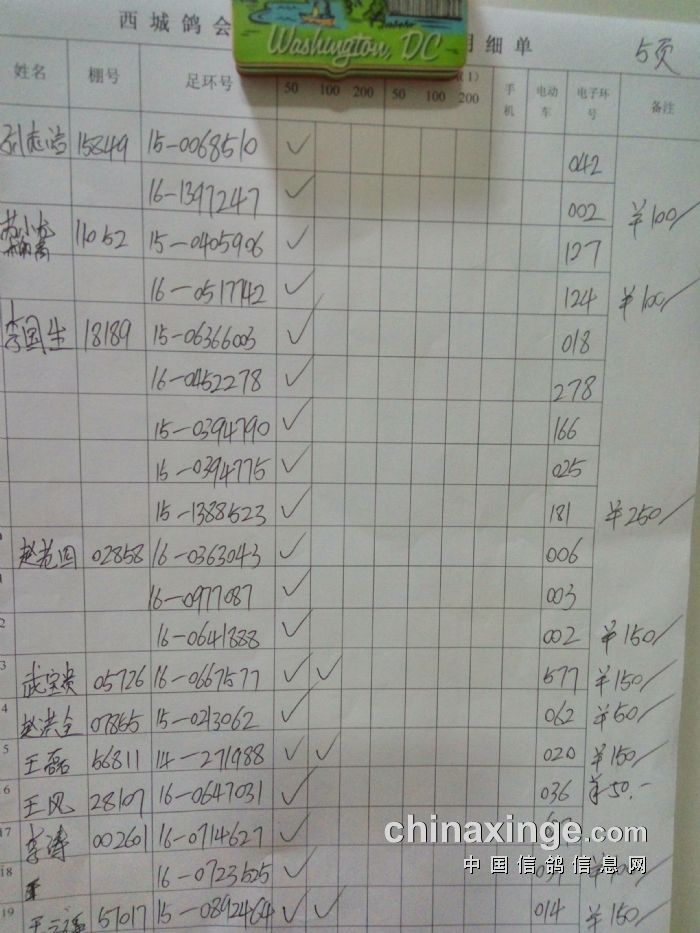 西城鸽会 明细单 5页
Washington, DC
姓名 棚号 足环号 50 100 200 50 100 200 手机 电动车 电子环号 备注
15849 15-0068510 ✓ 042
16-1397247 ✓ 002 ¥100/
11052 15-0405906 ✓ 127
16-0517742 ✓ 124 ¥100/
李国生 18189 15-06366003 ✓ 018
16-0452278 ✓ 278
15-0394790 ✓ 166
15-0394775 ✓ 025
15-1388523 ✓ 181 ¥250/
02858 16-0363043 ✓ 006
16-0977087 ✓ 003
2 16-0641888 ✓ 002 ¥150/
3 武宝贵 05726 16-0667577 ✓ ✓ 577 ¥150/
4 赵洪全 07865 15-0213062 ✓ 062 ¥50/
5 王磊 56811 14-271988 ✓ ✓ 020 ¥150/
6 王凤 28107 16-0647031 ✓ 036 ¥50.-
17 李涛 002601 16-0714627 ✓
chinaxinge.com
18 16-0723525 ✓
中国信鸽信息网
19 57017 15-0892464 ✓ ✓ 014 ¥150/